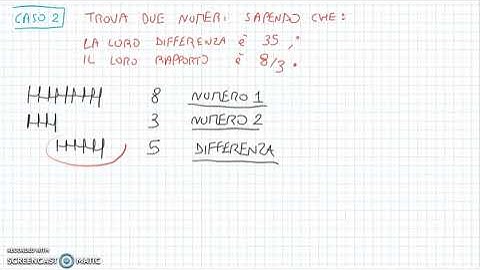 CASO 2 TROVA DUE NUMERI SAPENDO CHE:
LA LORO DIFFERENZA È 35,
IL LORO RAPPORTO È 8/3.
8 NUMERO 1
3 NUMERO 2
5 DIFFERENZA
RECORDED WITH
SCREENCAST MATIC